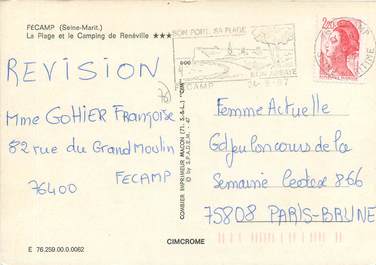 FECAMP (Seine-Marit.)
La Plage et le Camping de Renéville ★★★
SON PORT, SA PLAGE
SON ABBAYE
FECAMP
2,20
REVISION
Mme GOHIER Françoise
82 rue du Grand Moulin
76400
FECAMP
COMBIER IMPRIMEUR MACON (71. S.-&-L.) "CIM"
© by S.P.A.D.E.M.
Femme Actuelle
Gd jeu Concours de la
Semaine Cedex 866
75808 PARIS-BRUNE
CIMCROME
E 76.259.00.0.0062